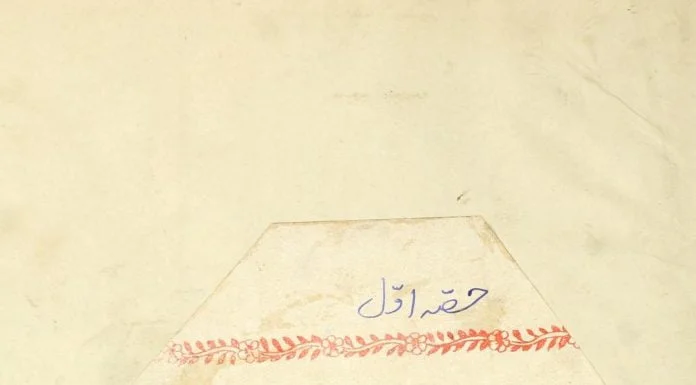 حصہ اوّل